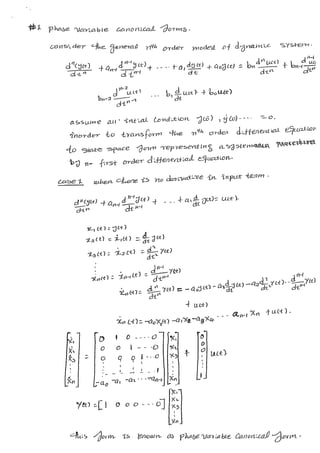 #2 phase variable canonical forms.
consider the general nth order model of dynamic system.
dⁿ(y(t))/dtⁿ + aₙ₋₁ dⁿ⁻¹y(t)/dtⁿ⁻¹ + .... + a₁ dy(t)/dt + a₀y(t) = bₙ dⁿu(t)/dtⁿ + bₙ₋₁ dⁿ⁻¹u(t)
bₙ₋₂ dⁿ⁻²u(t)/dtⁿ⁻² ... b₁ d/dt u(t) + b₀u(t)
assume all initial condition y(0), ẏ(0) .... = 0.
inorder to transform the nth order differential equation
to state space form representing a system
by n- first order differential equation.
case 1 when there is no derivative in input term.
dⁿ(y(t))/dtⁿ + aₙ₋₁ dⁿ⁻¹/dtⁿ⁻¹ y(t) + ... + a₁ d/dt y(t) = u(t).
x₁(t) = y(t)
x₂(t) = ẋ₁(t) = d/dt y(t)
x₃(t) = ẋ₂(t) = d²/dt² y(t)
⋮
xₙ(t) = ẋₙ₋₁(t) = dⁿ⁻¹/dtⁿ⁻¹ y(t)
ẋₙ(t) = dⁿ/dtⁿ y(t) = -a₀y(t) - a₁ d/dt y(t) - a₂ d²/dt² y(t) .. dⁿ⁻¹/dtⁿ⁻¹ y(t)
+ u(t)
ẋₙ(t) = -a₀x₁(t) - a₁x₂ - a₂x₃ ... aₙ₋₁ xₙ + u(t).
[ẋ₁] [0 1 0 ---- 0] [x₁] [0]
[ẋ₂] [0 0 1 -- - 0] [x₂] [0]
[ẋ₃] = [0 0 0 1 -- 0] [x₃] + [0] u(t)
[⋮] [⋮ ⋮ ⋮ 1] [⋮] [⋮]
[ẋₙ] [-a₀ -a₁ -a₂ ---- -aₙ₋₁] [xₙ] [1]
y(t) = [1 0 0 0 ---- 0] [x₁ x₂ x₃ ⋮ xₙ]
this form is known as phase variable canonical form.